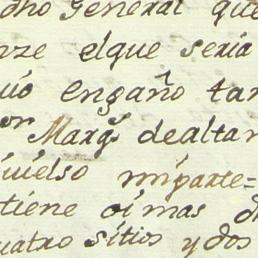 dho General que
nze elque seria
engaño tan
or Margs dealtam
imparte=
tiene oi mas d
uatro sitios y dos